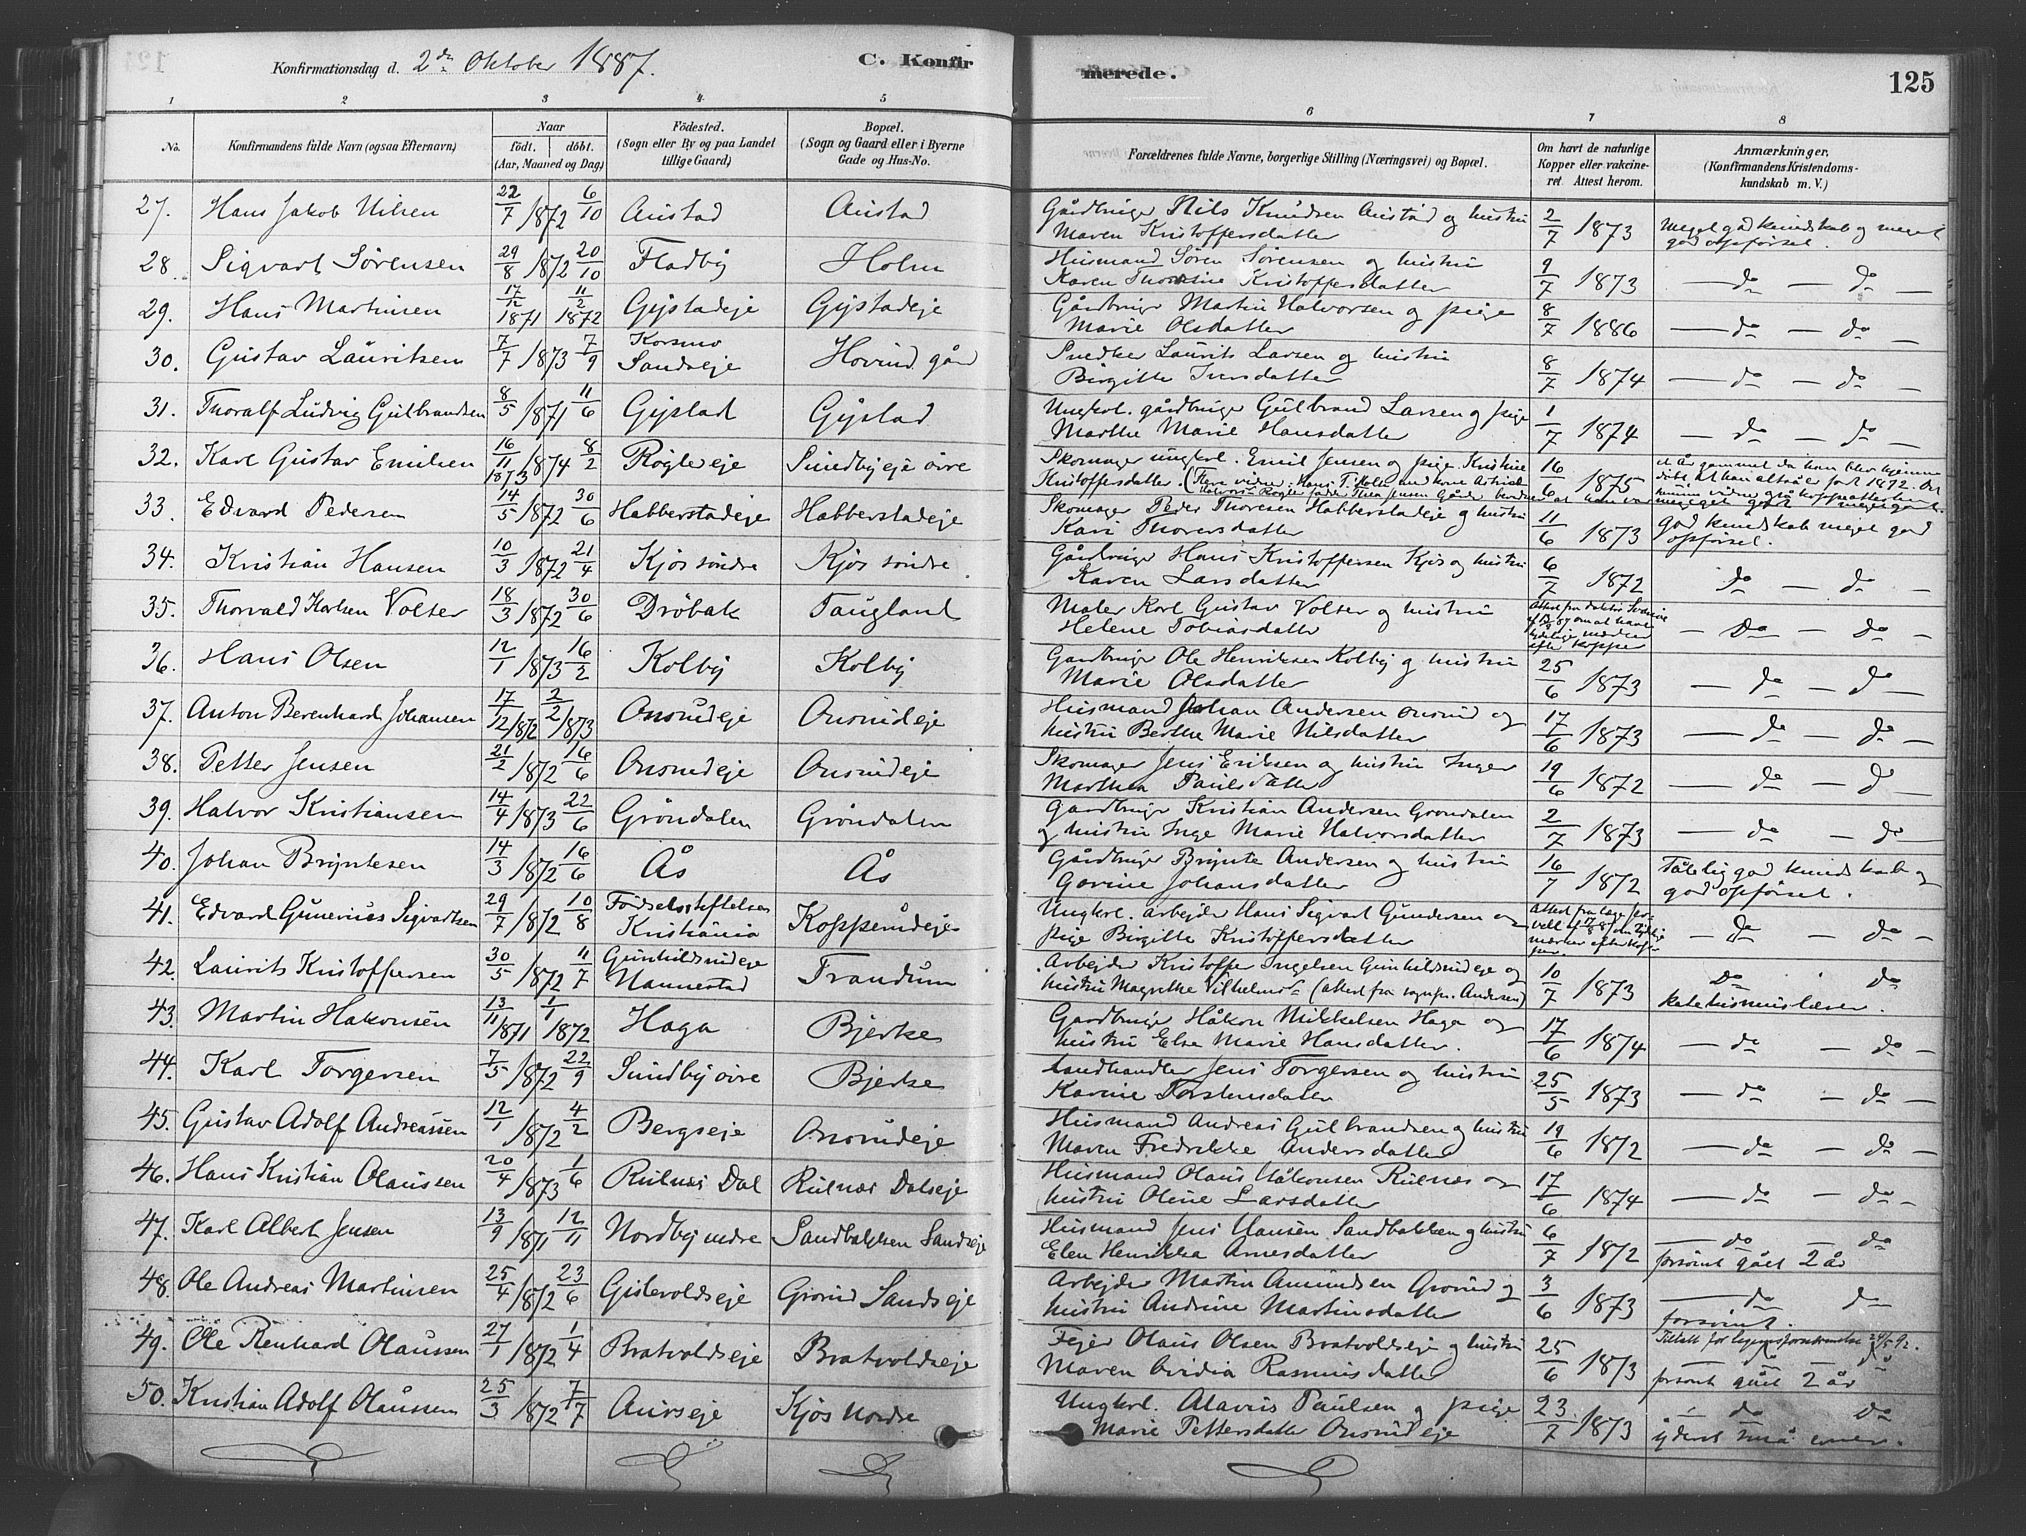 Konfirmationsdag d. 2den Oktober 1887.
C. Konfirmerede.
125
1 2 3 4 5 6 7 8
No.
Konfirmandens fulde Navn (ogsaa Efternavn)
Naar
födt. döbt.
(Aar, Maaned og Dag)
Födested.
(Sogn eller By og paa Landet
tillige Gaard)
Bopæl.
(Sogn og Gaard eller i Byerne
Gade og Hus-No.
Forældrenes fulde Navne, borgerlige Stilling (Næringsvei) og Bopæl.
Om havt de naturlige
Kopper eller vakcine-
ret Attest herom.
Anmærkninger,
(Konfirmandens Kristendoms-
kundskab m. V.)
27. Hans Jakob Nilsen 22/7 1872 6/10 Austad Austad Gårdbruger Nils Knudsen Austad og hustru 2/7 1873 Meget god kundskab og meget
Maren Kristoffersdatter god opförsel.
28 Sigvart Sörensen 29/8 1872 20/10 Fladby Holm Husmand Sören Sörensen og hustru 9/7 1873 — do — do —
Karen Thorstine Kristoffersdatter
29. Hans Martinsen 17/12 1871 11/2 1872 Gystadeje Gystadeje Gårdbruger Martin Halvorsen og pige 8/7 1886 — do — do
Marie Olsdatter
30. Gustav Lauritsen 7/7 1873 7/9 Korsmo Sandseje Hovind gård Snedker Laurits Larsen og hustru 8/7 1874 — do — do —
Birgitte Iversdatter
31. Thoralf Ludvig Gulbrandsen 8/5 1871 11/6 Gystad Gystad Ungkrl. gårdbruger Gulbrand Larsen og pige 1/7 1874 — do — do —
Marthe Marie Hansdatter
32. Karl Gustav Emilsen 16/11 1873 1874 8/2 Rögleeje Sundbyeje övre Skomager ungkrl. Emil Jensen og pige Kristine 16/6 1875
Kristoffersdatter.
33. Edvard Pedersen 14/5 1872 30/6 Habberstadeje Habberstadeje Skomager Peder Thoresen Habberstadeje og hustru 11/6 1873 god kundskab meget god
Kari Thorersdatter opförsel.
34. Kristian Hansen 10/3 1872 21/4 Kjös söndre Kjös söndre. Gårdbruger Hans Kristoffersen Kjös og hustru 6/7 1872 do — do —
Karen Larsdatter
35. Thorvald Karlsen Volter 18/3 1872 30/6 Dröbak Taugland Maler Karl Gustav Volter og hustru — do — do —
Helene Tobiasdatter efter kopper
36. Hans Olsen 12/1 1873 16/2 Kolby Kolby Gårdbruger Ole Henriksen Kolby og hustru 25/6 1873 — do — do —
Marie Olsdatter
37. Anton Berenhard Johansen 17/12 1872 2/2 1873 Onsrudeje Onsrudeje Husmand Johan Andersen Onsrud og 17/6 1873 — do — do —
hustru Berthe Marie Nilsdatter
38. Petter Jensen 21/2 1872 16/6 Onsrudeje Onsrudeje Skomager Jens Eriksen og hustru Inger 19/6 1872 — do — do
Marthea Paulsdatter
39. Halvor Kristiansen 14/4 1873 22/6 Gröndalen Gröndalen Gårdbruger Kristian Andersen Gröndalen 2/7 1873 — do — do —
og hustru Inge Marie Halvorsdatter
40. Johan Bryntesen 14/3 1872 16/6 Ås Ås Gårdbruger Brynte Andersen og hustru 16/7 1872 Tålelig god kundskab og
Gorine Johansdatter god opförsel.
41. Edvard Gunerius Sigvartsen 29/7 1872 10/8 Födselsstiftelsen Kristiania Kopperudeje Ungkrl. arbejder Hans Sigvart Gundersen og — do — do —
pige Birgitte Kristoffersdatter mærker efter kop-
per.
42. Laurits Kristoffersen 30/5 1872 11/7 Gunhildsrudeje Nannestad Trandum Arbejder Kristoffer Ingelsen Gunhildsrudeje og 10/7 1873 Do do
hustru Magrethe Vilhelmsd (attest fra sognepr. Andersen) katekismuslæser.
43. Martin Hakonsen 13/11 1871 1/1 1872 Haga Bjerke Gårdbruger Håkon Mikkelsen Haga og 17/6 1874 — do — do —
hustru Else Marie Hansdatter.
44. Karl Torgersen 7/5 1872 22/9 Sundby övre Bjerke Landhandler Jens Torgersen og hustru 25/5 1873 — do — do —
Karine Torstensdatter
45. Gustav Adolf Andreassen 12/1 1872 4/2 Bergseje Onsrudeje Husmand Andreas Gulbrandsen og hustru 19/6 1872 — do — do
Maren Fredrikke Andersdatter
46. Hans Kristian Olaussen 20/4 1873 1/6 Rulnæs Dal Rulnæs Dalseje Husmand Olaus Håkonsen Rulnæs og 17/6 1874 — do — do —
hustru Oline Larsdatter
47. Karl Albert Jensen 13/9 1871 12/11 Nordby nedre Sandbakken Sandseje Husmand Jens Hansen Sandbakken og hustru 6/7 1872 — do — do
Elen Henrikka Arnesdatter forsömt gået 2 år
48. Ole Andreas Martinsen 25/4 1872 23/6 Gislevoldseje Grorud Sandseje Arbejder Martin Amundsen Grorud og 3/6 1873 — do do
hustru Andrine Martinsdatter forsömt.
49. Ole Renhard Olaussen 27/1 1872 1/4 Bratvoldseje Bratvoldseje Fejer Olaus Olsen Bratvoldseje og hustru 25/6 1873 — do — do
Maren Ovidia Rasmusdatter forsömt gået 2 år
50. Kristian Adolf Olaussen 25/3 1872 7/7 Aurseje Kjös Nordre Ungkrl. Olavus Paulsen og pige 23/7 1873 — do do
Marie Pettersdatter Onsrudeje yderst små evner.